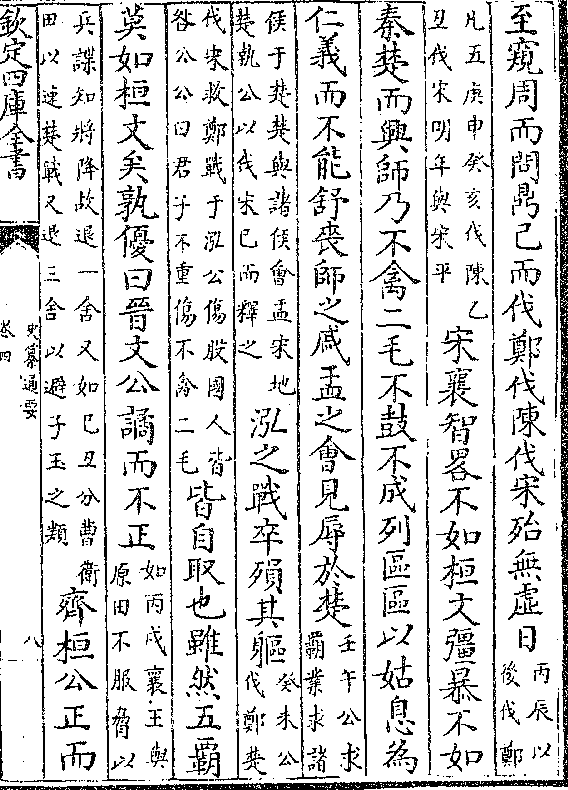 至窺周而問鼎已而伐鄭伐陳伐宋殆無虛日丙辰以後伐鄭
凡五庚申癸亥伐陳乙丑伐宋明年與宋平宋襄智畧不如桓文彊暴不如
秦楚而興師乃不禽二毛不鼓不成列區區以姑息為
仁義而不能舒喪師之慼盂之會見辱於楚壬午公求霸業求諸
侯于楚楚與諸侯會盂宋地楚執公以伐宋已而釋之泓之戰卒殞其軀癸未公伐鄭楚
伐宋救鄭戰于泓公傷股國人皆咎公公曰君子不重傷不禽二毛皆自取也雖然五霸
莫如桓文矣孰優曰晉文公譎而不正如丙戌襄王與原田不服脅以
兵諜知將降故退一舍又如己丑分曹衛田以速楚戰又退三舍以避子玉之類齊桓公正而
欽定四庫全書
史纂通要
卷四
八